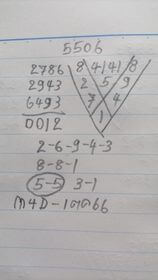 5506
2786 8 4 1 4 1 8
2943 2 5 9
6493 7 4
0012 1
2-6-9-4-3
8-8-1
5-5 3-1